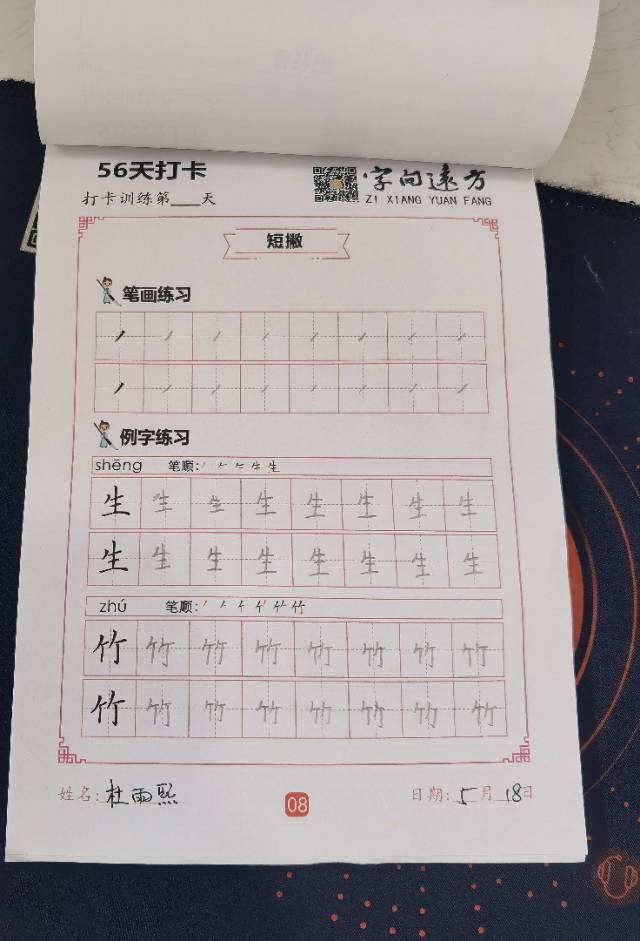 56天打卡
打卡训练第___天
字向远方
ZI XIANG YUAN FANG
短撇
笔画练习
例字练习
shēng 笔顺:
生 生 生 生 生 生 生 生
生 生 生 生 生 生 生 生
zhú 笔顺:
竹 竹 竹 竹 竹 竹 竹 竹
竹 竹 竹 竹 竹 竹 竹 竹
姓名: 杜雨熙 08 日期: 5月18日